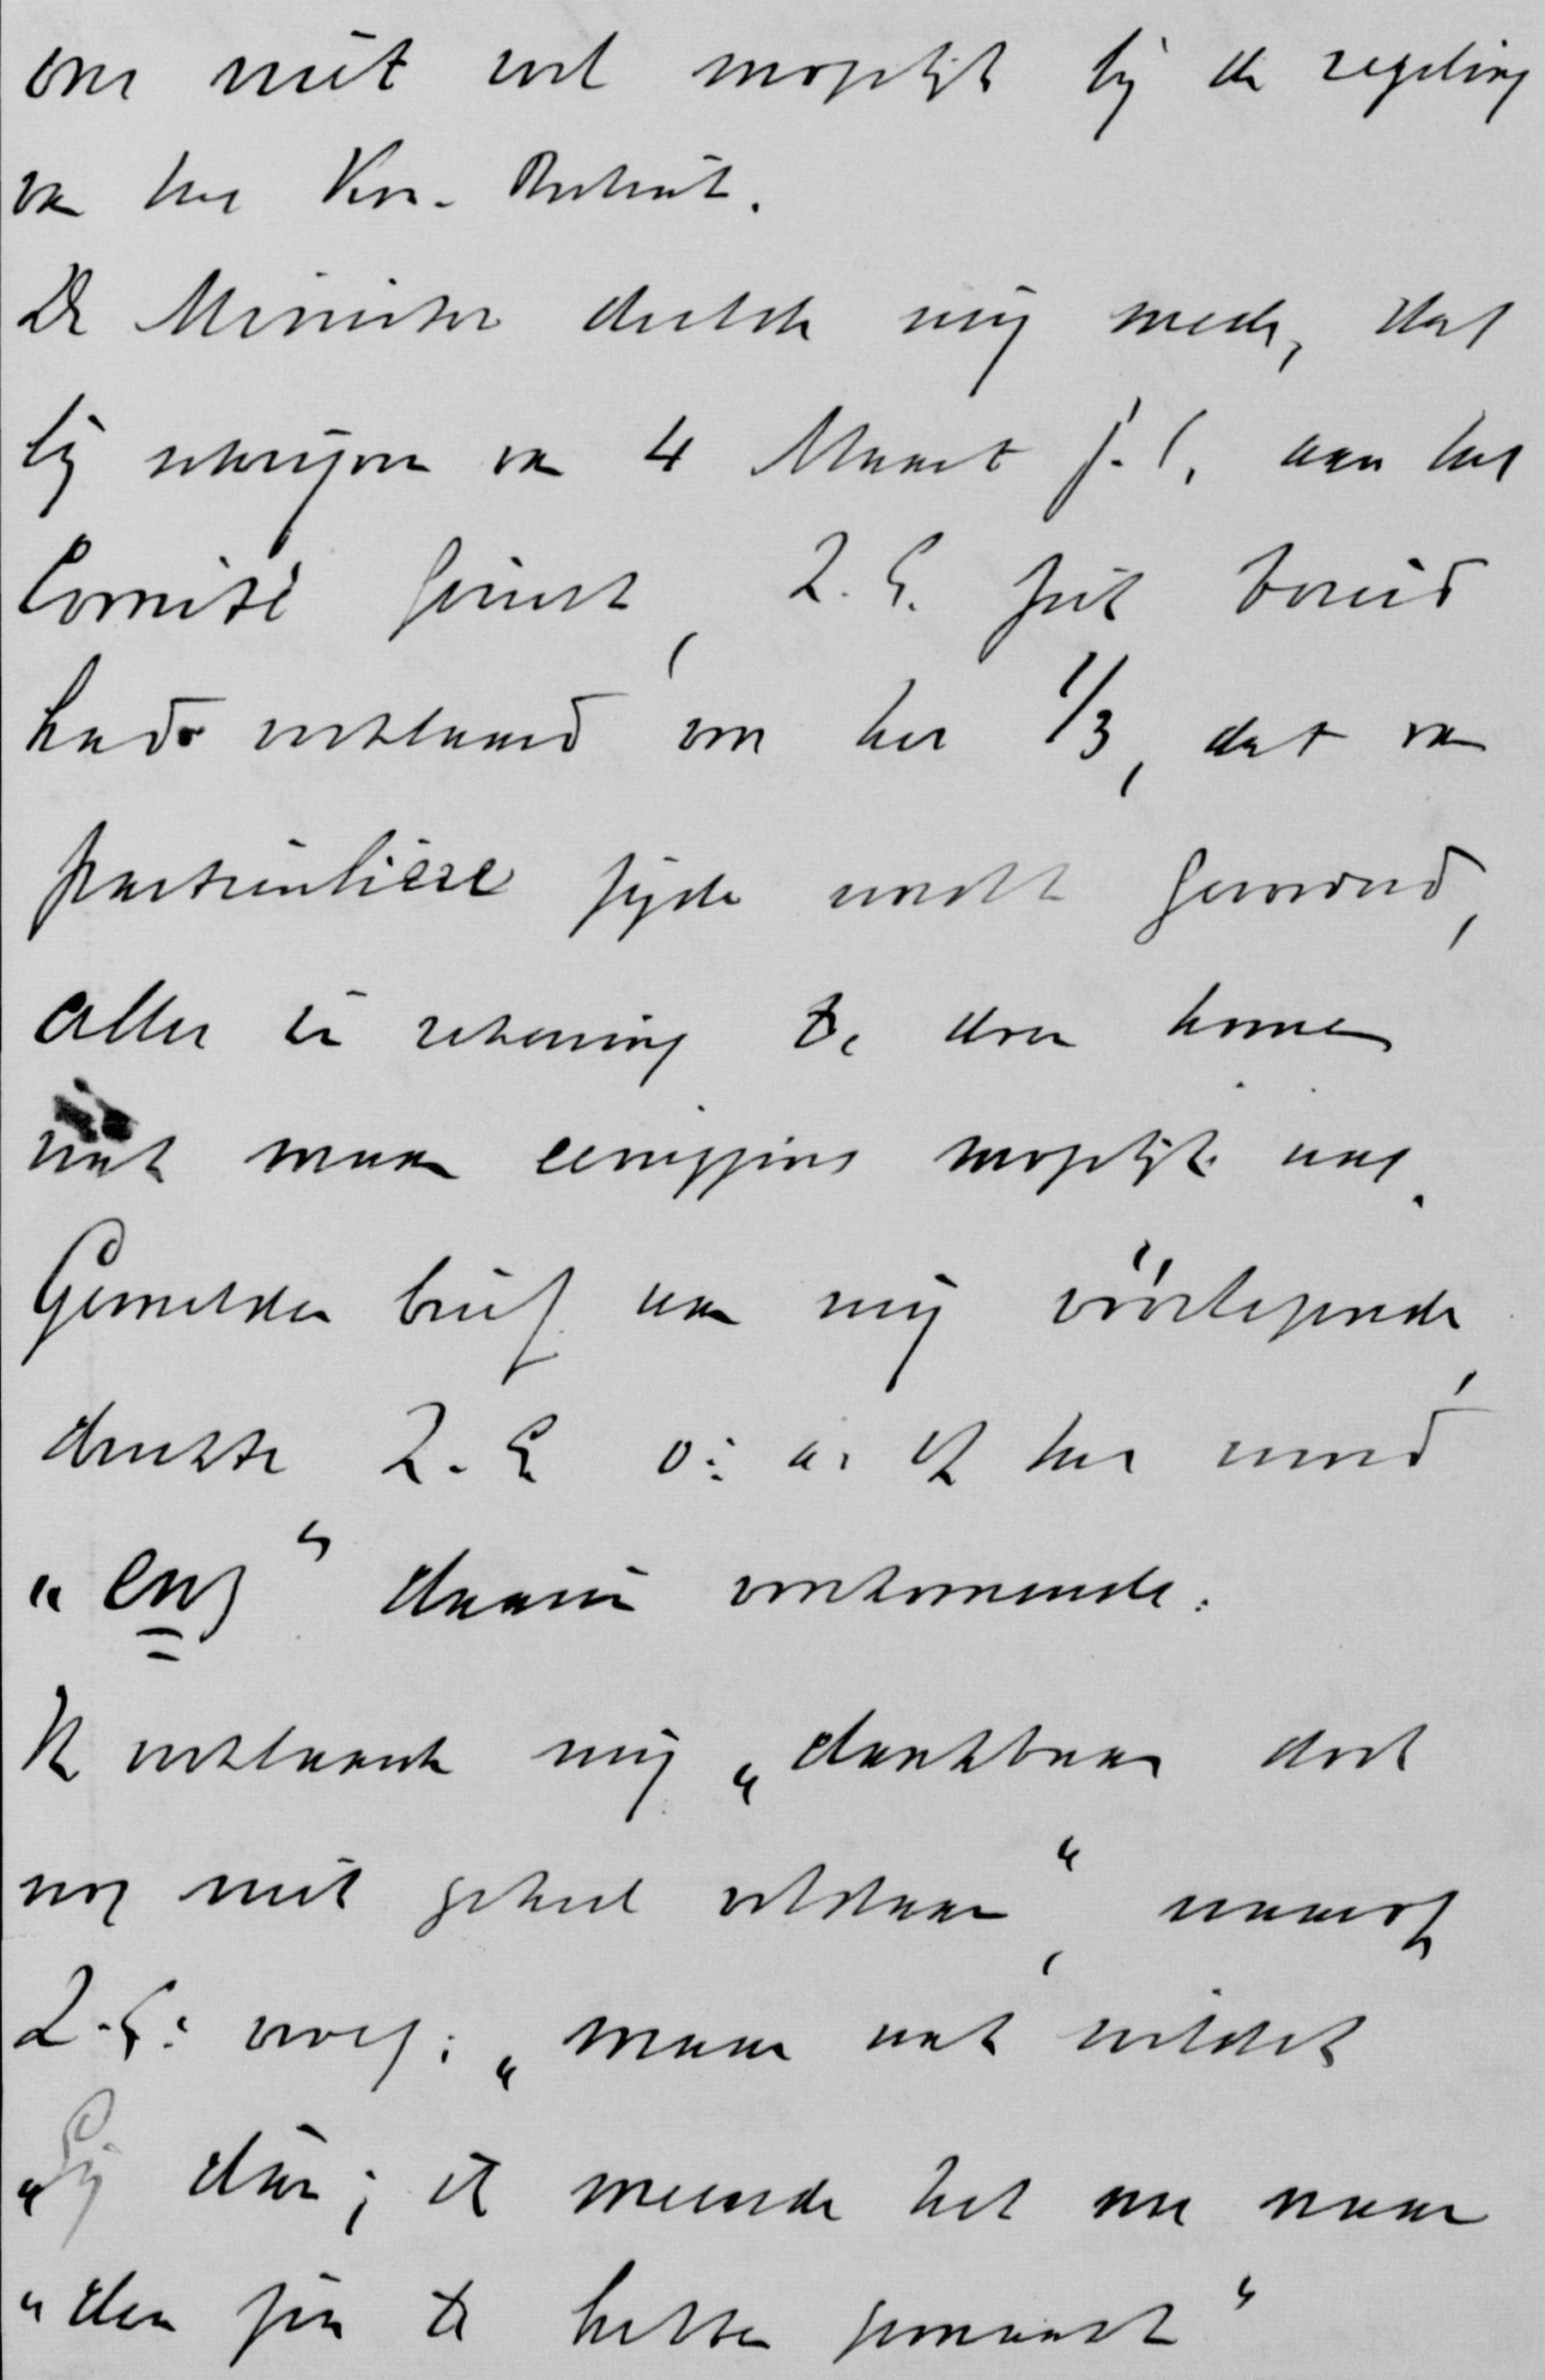 om niet wel mogelijk bij de regeling
van het Kon. Besluit.
De Minister deelde mij mede, dat
bij schrijven van 4 Maart j.l. aan het
Comité gericht, Z.E. zich bereid
had verklaard om het 1/3, dat van
particulière zijde wordt gevorderd,
alles in rekening te doen komen
wat maar eenigzins mogelijk was.
Gemelden brief aan mij vóórlezende,
drukte Z.E. o.a. op het woord
„enz“ daarin voorkomende.
Ik verklaarde mij „dankbaar doch
nog niet geheel voldaan“, waarop
Z.E. vroeg: „maar wat wildet
„Gij dan; ik meende het nu naar
„den zin te hebben gemaakt“